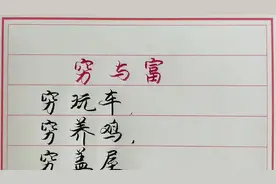 穷与富
穷玩车，
穷养鸡，
穷盖屋